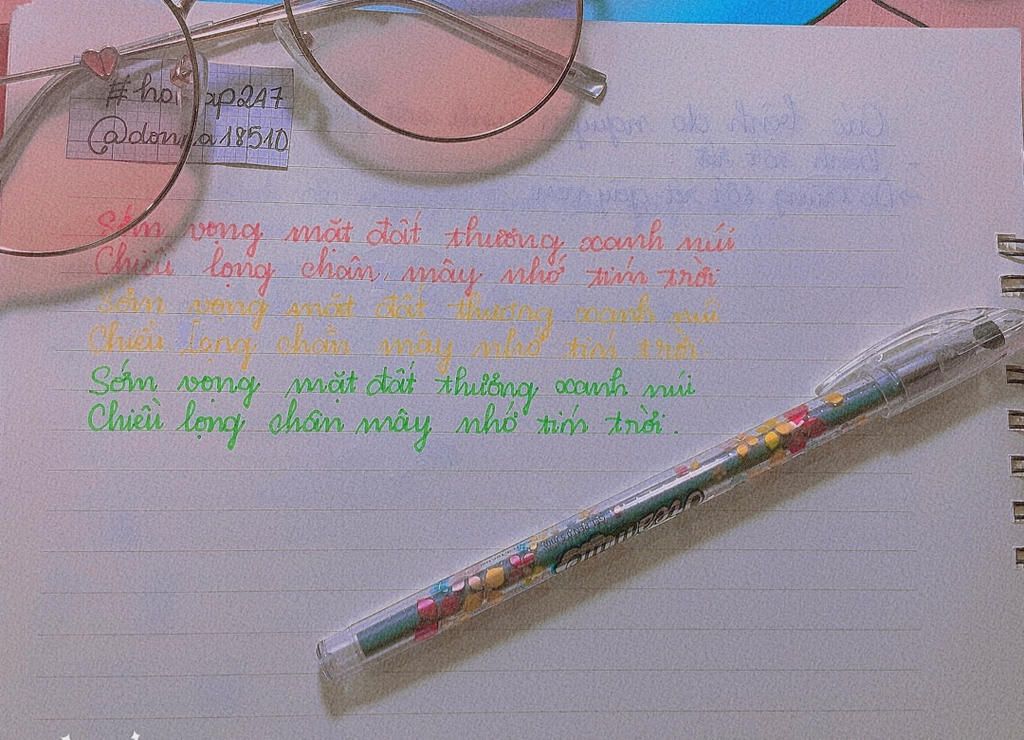 #ho ap247
@don a18510
Sớm vọng mặt đất thương xanh núi
Chiều lọng chân mây nhớ tím trời
Sớm vọng mặt đất thương xanh núi
Chiều lọng chân mây nhớ tím trời.
Sớm vọng mặt đất thương xanh núi
Chiều lọng chân mây nhớ tím trời.